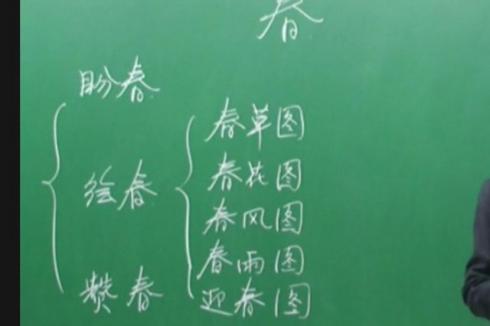 春
盼春
绘春
春草图
春花图
春风图
春雨图
迎春图
赞春